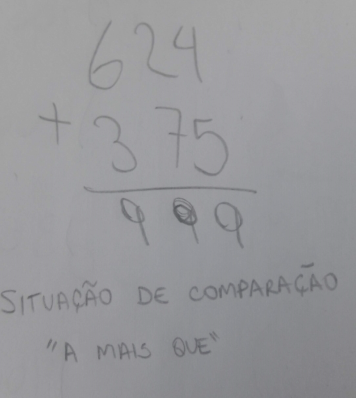 624
+ 375
999
SITUAÇÃO DE COMPARAÇÃO
"A MAIS QUE"